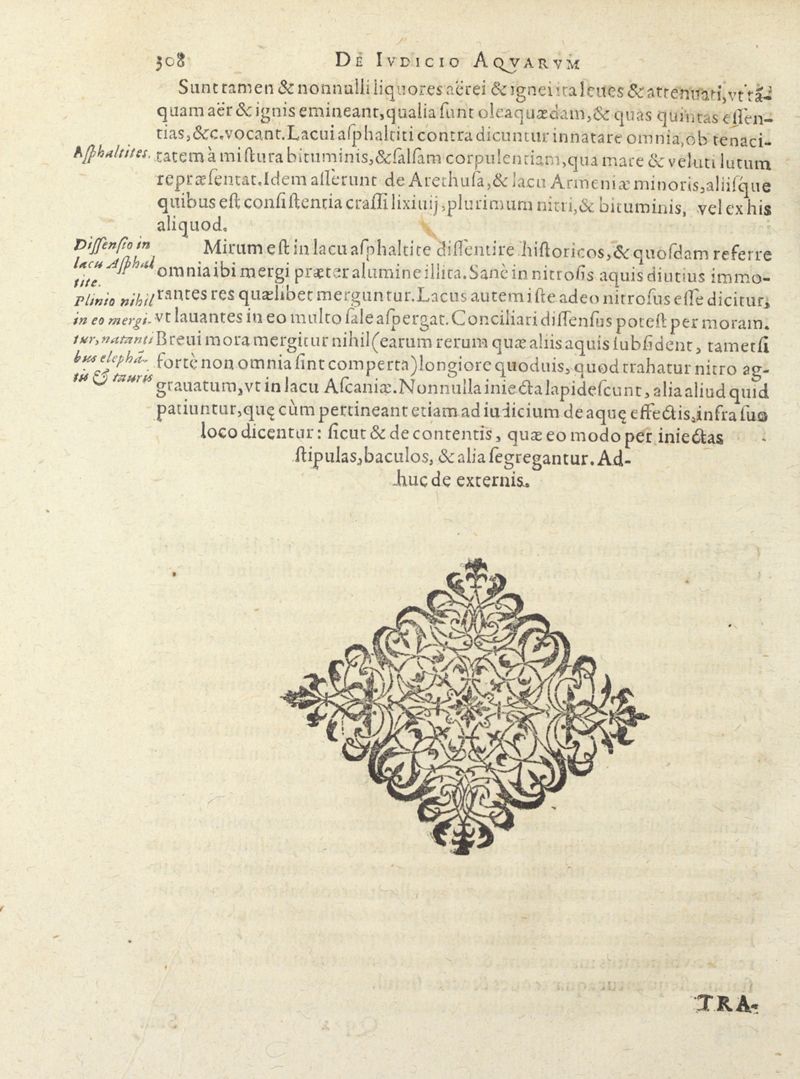 308 DE IVDICIO AQVARVM
Sunt tamen & nonnulli liquores aërei & ignei ita leues & attenuati, vt tã-
quam aër & ignis emineant, qualia sunt olea quædam, & quas quintas essen-
tias, &c. vocant. Lacui asphaltiti contra dicuntur innatare omnia, ob tenaci-
Asphaltites.
tatem à mistura bituminis, & salsam corpulentiam, qua mare & veluti lutum
repræsentat. Idem asserunt de Arethusa, & lacu Armeniæ minoris, aliisque
quibus est consistentia crassi lixiuij, plurimum nitri, & bituminis, vel ex his
aliquod.
Dissensio in
lacu Asphal
tite.
Plinio nihil
in eo mergi-
tur, natanti
bus elephã-
tis & tauris
Mirum est in lacu asphaltite dissentire historicos, & quosdam referre
omnia ibi mergi præter alumine illita. Sanè in nitrosis aquis diutius immo-
rantes res quælibet merguntur. Lacus autem iste adeo nitrosus esse dicitur,
vt lauantes in eo multo sale aspergat. Conciliari dissensus potest per moram.
Breui mora mergitur nihil (earum rerum quæ aliis aquis subsident, tametsi
fortè non omnia sint comperta) longiore quoduis, quod trahatur nitro ag-
grauatum, vt in lacu Ascaniæ. Nonnulla iniecta lapidescunt, alia aliud quid
patiuntur, quę cùm pertineant etiam ad iudicium de aquę effectis, infra suo
loco dicentur: sicut & de contentis, quæ eo modo per iniectas
stipulas, baculos, & alia segregantur. Ad-
huc de externis.
TRA-